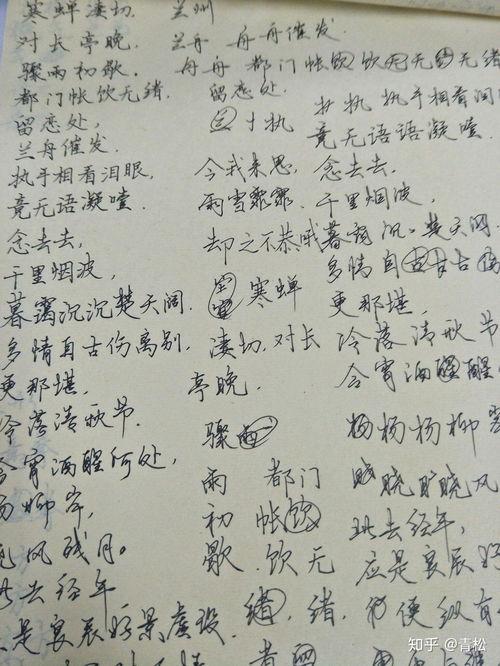 寒蝉凄切. 兰州
对长亭晚, 兰舟 舟舟催发.
骤雨初歇. 舟舟 都门帐饮饮无无 无绪
都门帐饮无绪. 留恋处.
留恋处, 寸执 执手相看泪
兰舟催发. 竟无语语凝噎.
执手相看泪眼, 今我来思, 念去去,
竟无语凝噎. 雨雪霏霏. 千里烟波,
念去去, 却之不恭 暮霭沉. 楚天阔.
千里烟波, 多情自古古
暮霭沉沉楚天阔. 寒蝉 更那堪,
多情自古伤离别, 凄切. 对长 冷落清秋节
更那堪, 亭晚. 今宵酒醒醒
冷落清秋节. 骤雨 杨杨柳岸
今宵酒醒何处, 雨 都门 晓晓风
杨柳岸, 初 帐饮 此去经年,
晓风残月. 歇. 饮无 应是良辰好
此去经年 绪, 绪. 便纵有
应是良辰好景虚设.
知乎 @青松